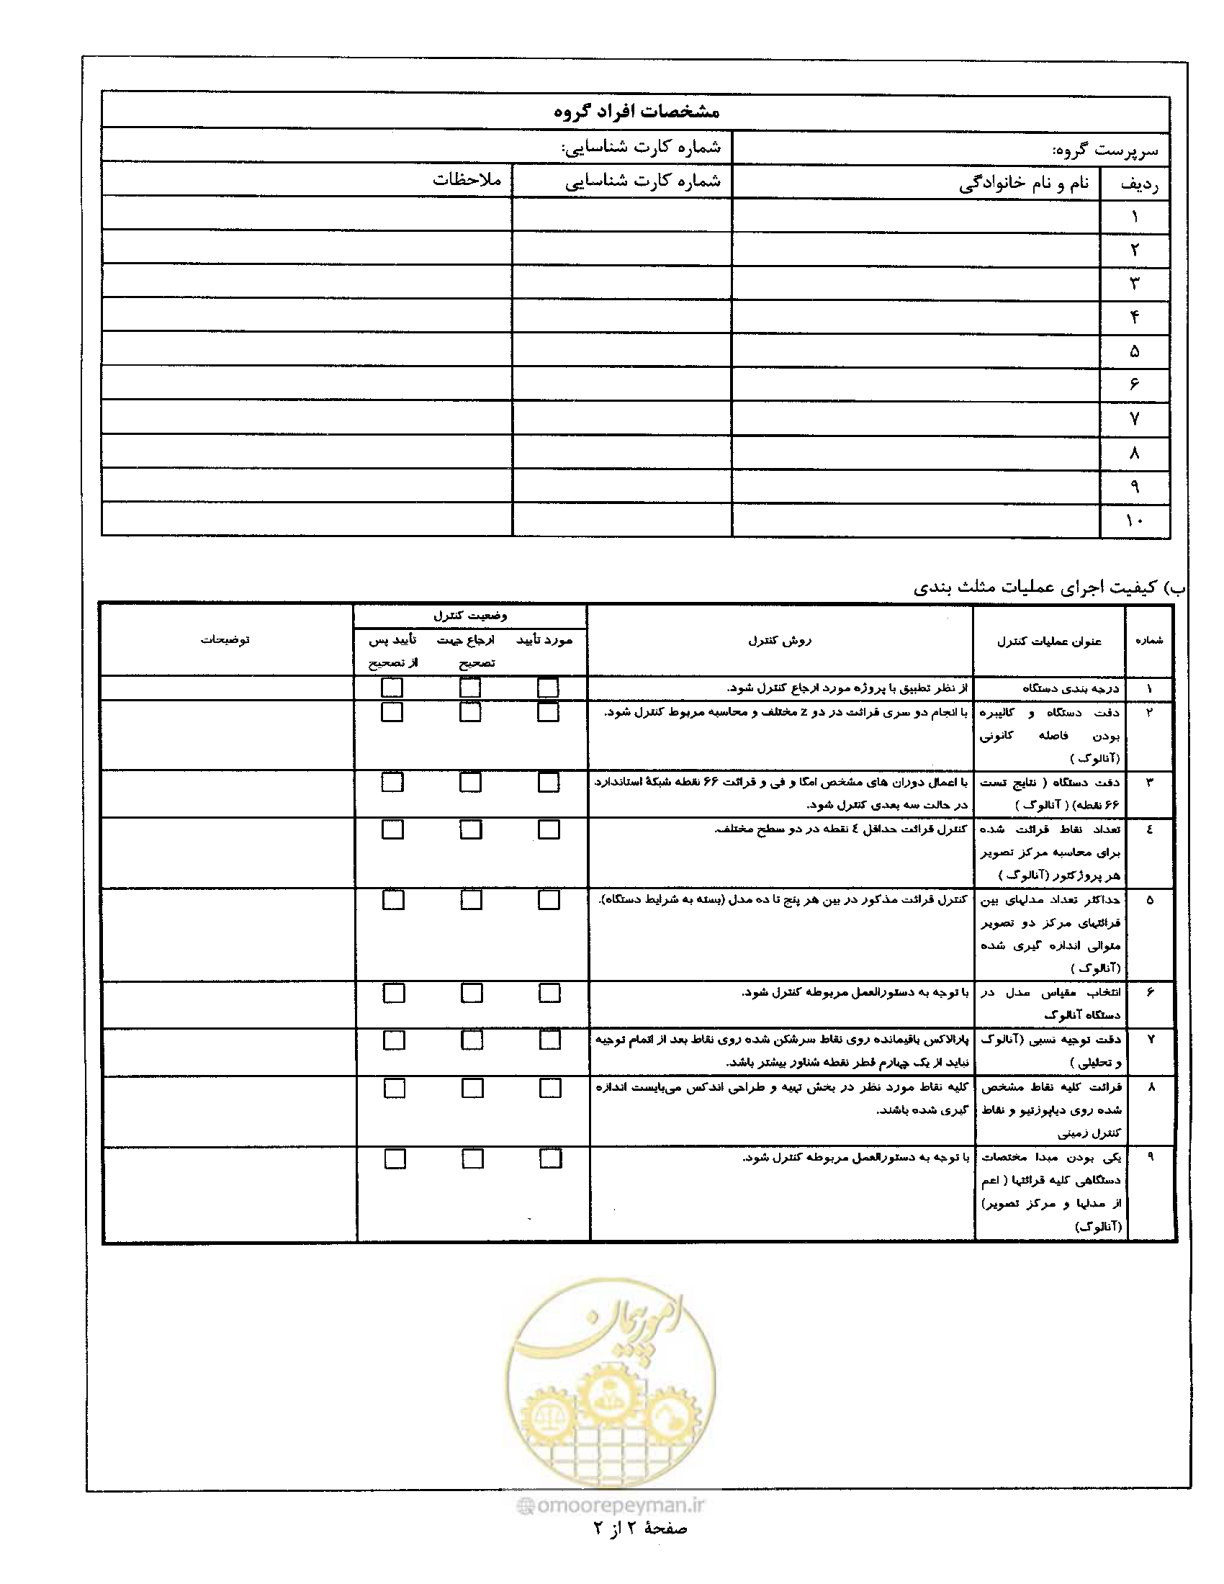 مشخصات افراد گروه
سرپرست گروه:
شماره کارت شناسایی:
ردیف
نام و نام خانوادگی
شماره کارت شناسایی
ملاحظات
۱
۲
۳
۴
۵
۶
۷
۸
۹
۱۰
ب) کیفیت اجرای عملیات مثلث بندی
شماره
عنوان عملیات کنترل
روش کنترل
وضعیت کنترل
مورد تأیید
ارجاع جهت
تصحیح
تأیید پس
از تصحیح
توضیحات
۱
درجه بندی دستگاه
از نظر تطبیق با پروژه مورد ارجاع کنترل شود.
۲
دقت دستگاه و کالیبره
بودن فاصله کانونی
(آنالوگ )
با انجام دو سری قرائت در دو z مختلف و محاسبه مربوط کنترل شود.
۳
دقت دستگاه ( نتایج تست
۶۶ نقطه) ( آنالوگ )
با اعمال دوران های مشخص امگا و فی و قرائت ۶۶ نقطه شبکهٔ استاندارد
در حالت سه بعدی کنترل شود.
٤
تعداد نقاط قرائت شده
برای محاسبه مرکز تصویر
هر پروژکتور (آنالوگ )
کنترل قرائت حداقل ٤ نقطه در دو سطح مختلف.
۵
حداکثر تعداد مدلهای بین
قرائتهای مرکز دو تصویر
متوالی اندازه گیری شده
(آنالوگ )
کنترل قرائت مذکور در بین هر پنج تا ده مدل (بسته به شرایط دستگاه).
۶
انتخاب مقیاس مدل در
دستگاه آنالوگ
با توجه به دستورالعمل مربوطه کنترل شود.
۷
دقت توجیه نسبی (آنالوگ
و تحلیلی )
پارالاکس باقیمانده روی نقاط سرشکن شده روی نقاط بعد از اتمام توجیه
نباید از یک چهارم قطر نقطه شناور بیشتر باشد.
۸
قرائت کلیه نقاط مشخص
شده روی دیاپوزتیو و نقاط
کنترل زمینی
کلیه نقاط مورد نظر در بخش تهیه و طراحی اندکس می‌بایست اندازه
گیری شده باشند.
۹
یکی بودن مبدا مختصات
دستگاهی کلیه قرائتها ( اعم
از مدلها و مرکز تصویر)
(آنالوگ)
با توجه به دستورالعمل مربوطه کنترل شود.
امور پیمان
@omoorepeyman.ir
صفحهٔ ۲ از ۲